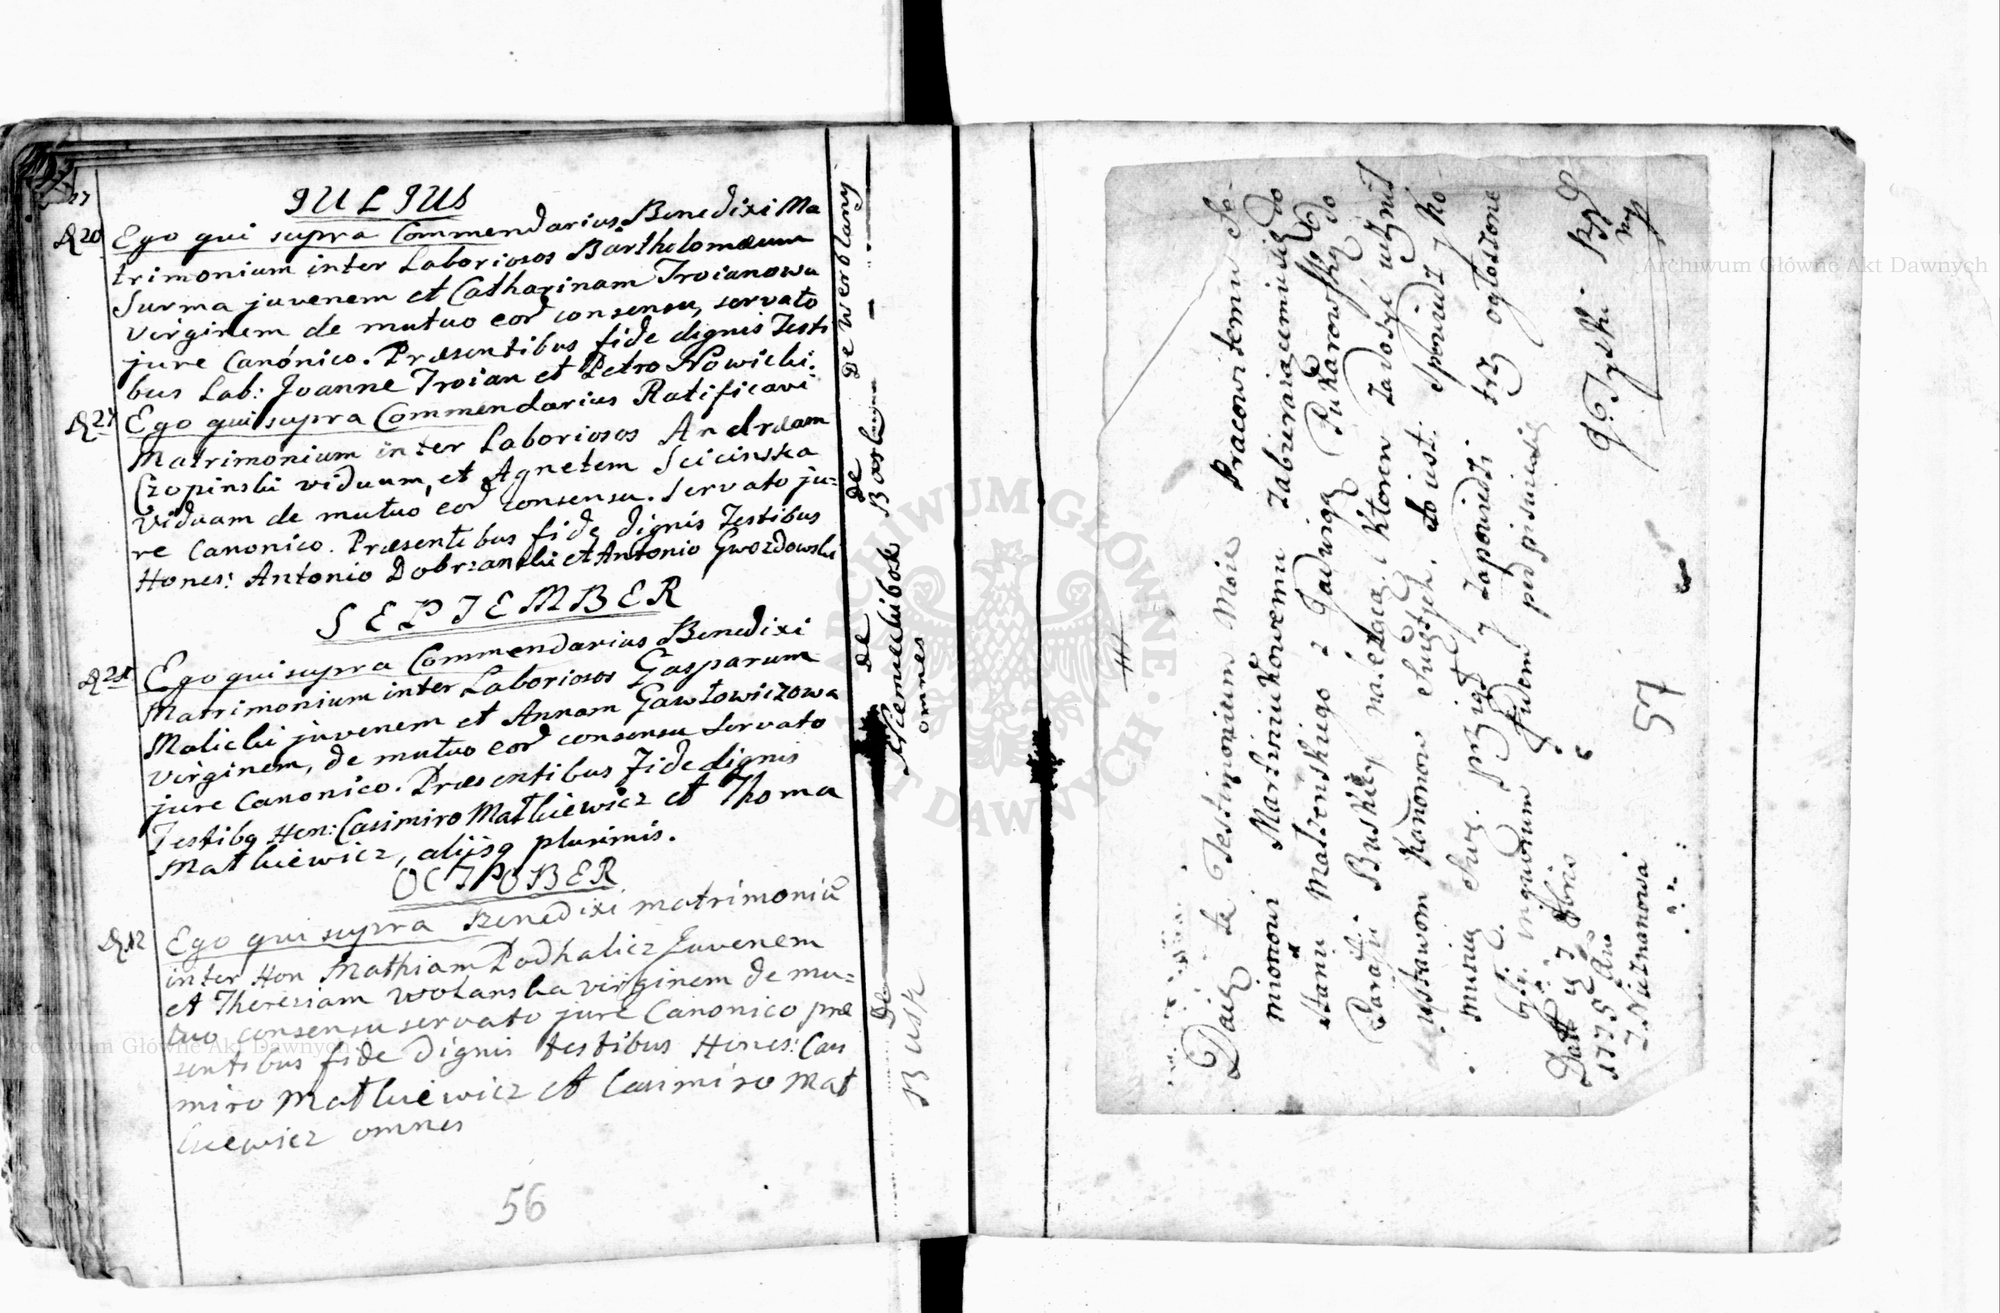 JULIUS
D 20 Ego qui supra Commendarius Benedixi Ma
trimonium inter Laboriosos Bartholomæum
Surma juvenem et Catharinam Troianowa
virginem de mutuo eord consensu, servato
jure Canónico. Præsentibus fide dignis Testi
bus Lab: Joanne Troian et Petro Nowicki.
D 27 Ego qui supra Commendarius Ratificavi
Matrimonium inter Laboriosos Andræam
Czopinski viduum, et Agnetem Scicinska
viduam de mutuo eord consensu. Servato ju=
re Canonico. Præsentibus fide dignis Testibus
Hones: Antonio Dobrzanski et Antonio Gwozdowski
SEPTEMBER
D 21 Ego qui supra Commendarius Benedixi
Matrimonium inter Laboriosos Gasparum
Malicki juvenem et Annam Gawłowiczowa
virginem, de mutuo eord consensu servato
jure Canonico. Præsentibus Fide dignis
Testibq Hon: Casimiro Matkiewicz et Thoma
Matkiewicz, aliisq plurimis.
OCTOBER
D 12 Ego qui supra Benedixi matrimoniu
inter Hon Mathiam Podhalicz Juvenem
et Theresiam Wolanska virginem de mu=
tuo consensu servato jure Canonico præ
sentibus fide dignis testibus Hones: Cas
miro Matkiewicz et Casimiro Mat
kiewicz omnes
56
De Werblany
de
de
omnes
de
Busk
Daię te Testimonium Moie Pracowitemu Se-
mionowi Martiniukowemu zabieraiącemu się do
stanu Małżenskiego z Jadwigą Pukarowską do
Parafii Buskiey należącą. Ktoren zadosyć uczynił
ustawom Kanonow Swiętych,
y zapowiedzi trzy ogłoszone
były. in quorum fidem podpisuię się
1775 Anno
57
Archiwum Główne Akt Dawnych
ARCHIWUM GŁÓWNE AKT DAWNYCH
Archiwum Główne Akt Dawnych